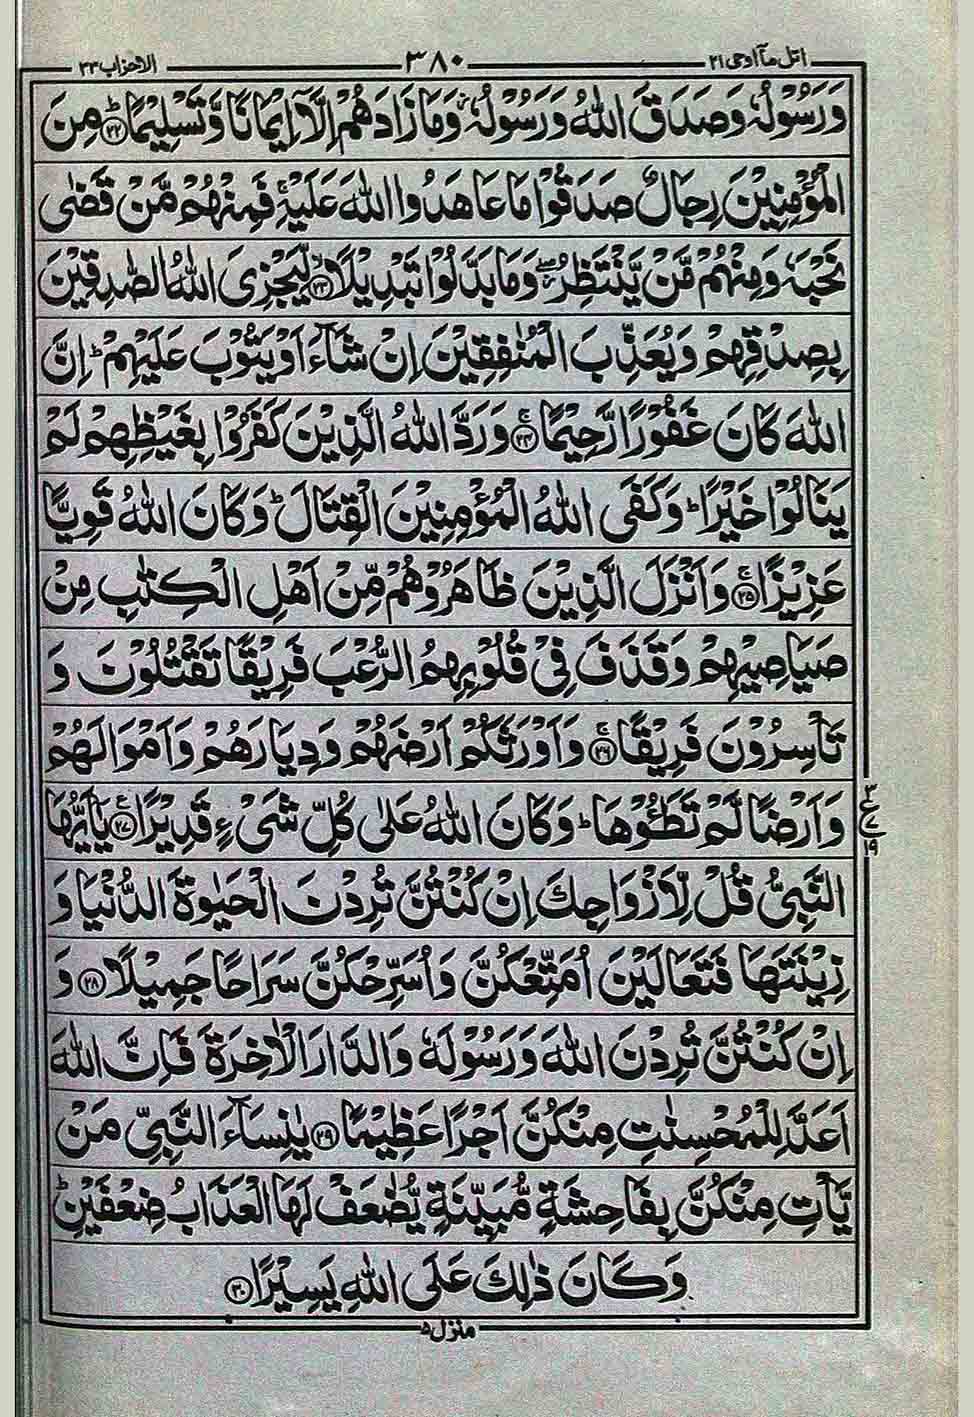 اتل مآ اوحی ۲۱ ۳۸۰ الاحزاب ۳۳
وَرَسُوْلُهٗ وَصَدَقَ اللّٰهُ وَرَسُوْلُهٗ ز وَمَا زَادَهُمْ اِلَّآ اِيْمَانًا وَّتَسْلِيْمًا ؕ ﴿۲۲﴾ مِنَ
الْمُؤْمِنِيْنَ رِجَالٌ صَدَقُوْا مَا عَاهَدُوا اللّٰهَ عَلَيْهِ ۚ فَمِنْهُمْ مَّنْ قَضٰى
نَحْبَهٗ وَمِنْهُمْ مَّنْ يَّنْتَظِرُ ۖ وَمَا بَدَّلُوْا تَبْدِيْلًا ۙ ﴿۲۳﴾ لِّيَجْزِىَ اللّٰهُ الصّٰدِقِيْنَ
بِصِدْقِهِمْ وَيُعَذِّبَ الْمُنٰفِقِيْنَ اِنْ شَآءَ اَوْ يَتُوْبَ عَلَيْهِمْ ؕ اِنَّ
اللّٰهَ كَانَ غَفُوْرًا رَّحِيْمًا ۚ ﴿۲۴﴾ وَرَدَّ اللّٰهُ الَّذِيْنَ كَفَرُوْا بِغَيْظِهِمْ لَمْ
يَنَالُوْا خَيْرًا ؕ وَكَفَى اللّٰهُ الْمُؤْمِنِيْنَ الْقِتَالَ ؕ وَكَانَ اللّٰهُ قَوِيًّا
عَزِيْزًا ۚ ﴿۲۵﴾ وَاَنْزَلَ الَّذِيْنَ ظَاهَرُوْهُمْ مِّنْ اَهْلِ الْكِتٰبِ مِنْ
صَيَاصِيْهِمْ وَقَذَفَ فِىْ قُلُوْبِهِمُ الرُّعْبَ فَرِيْقًا تَقْتُلُوْنَ وَ
تَاْسِرُوْنَ فَرِيْقًا ۚ ﴿۲۶﴾ وَاَوْرَثَكُمْ اَرْضَهُمْ وَدِيَارَهُمْ وَاَمْوَالَهُمْ
وَاَرْضًا لَّمْ تَطَـُٔوْهَا ؕ وَكَانَ اللّٰهُ عَلٰى كُلِّ شَىْءٍ قَدِيْرًا ﴿۲۷﴾ يٰۤاَيُّهَا
۳ ع ۷ ۱۹
النَّبِىُّ قُلْ لِّاَزْوَاجِكَ اِنْ كُنْتُنَّ تُرِدْنَ الْحَيٰوةَ الدُّنْيَا وَ
زِيْنَتَهَا فَتَعَالَيْنَ اُمَتِّعْكُنَّ وَاُسَرِّحْكُنَّ سَرَاحًا جَمِيْلًا ﴿۲۸﴾ وَ
اِنْ كُنْتُنَّ تُرِدْنَ اللّٰهَ وَرَسُوْلَهٗ وَالدَّارَ الْاٰخِرَةَ فَاِنَّ اللّٰهَ
اَعَدَّ لِلْمُحْسِنٰتِ مِنْكُنَّ اَجْرًا عَظِيْمًا ﴿۲۹﴾ يٰنِسَآءَ النَّبِىِّ مَنْ
يَّاْتِ مِنْكُنَّ بِفَاحِشَةٍ مُّبَيِّنَةٍ يُّضٰعَفْ لَهَا الْعَذَابُ ضِعْفَيْنِ ؕ
وَكَانَ ذٰلِكَ عَلَى اللّٰهِ يَسِيْرًا ﴿۳۰﴾
منزل ۵